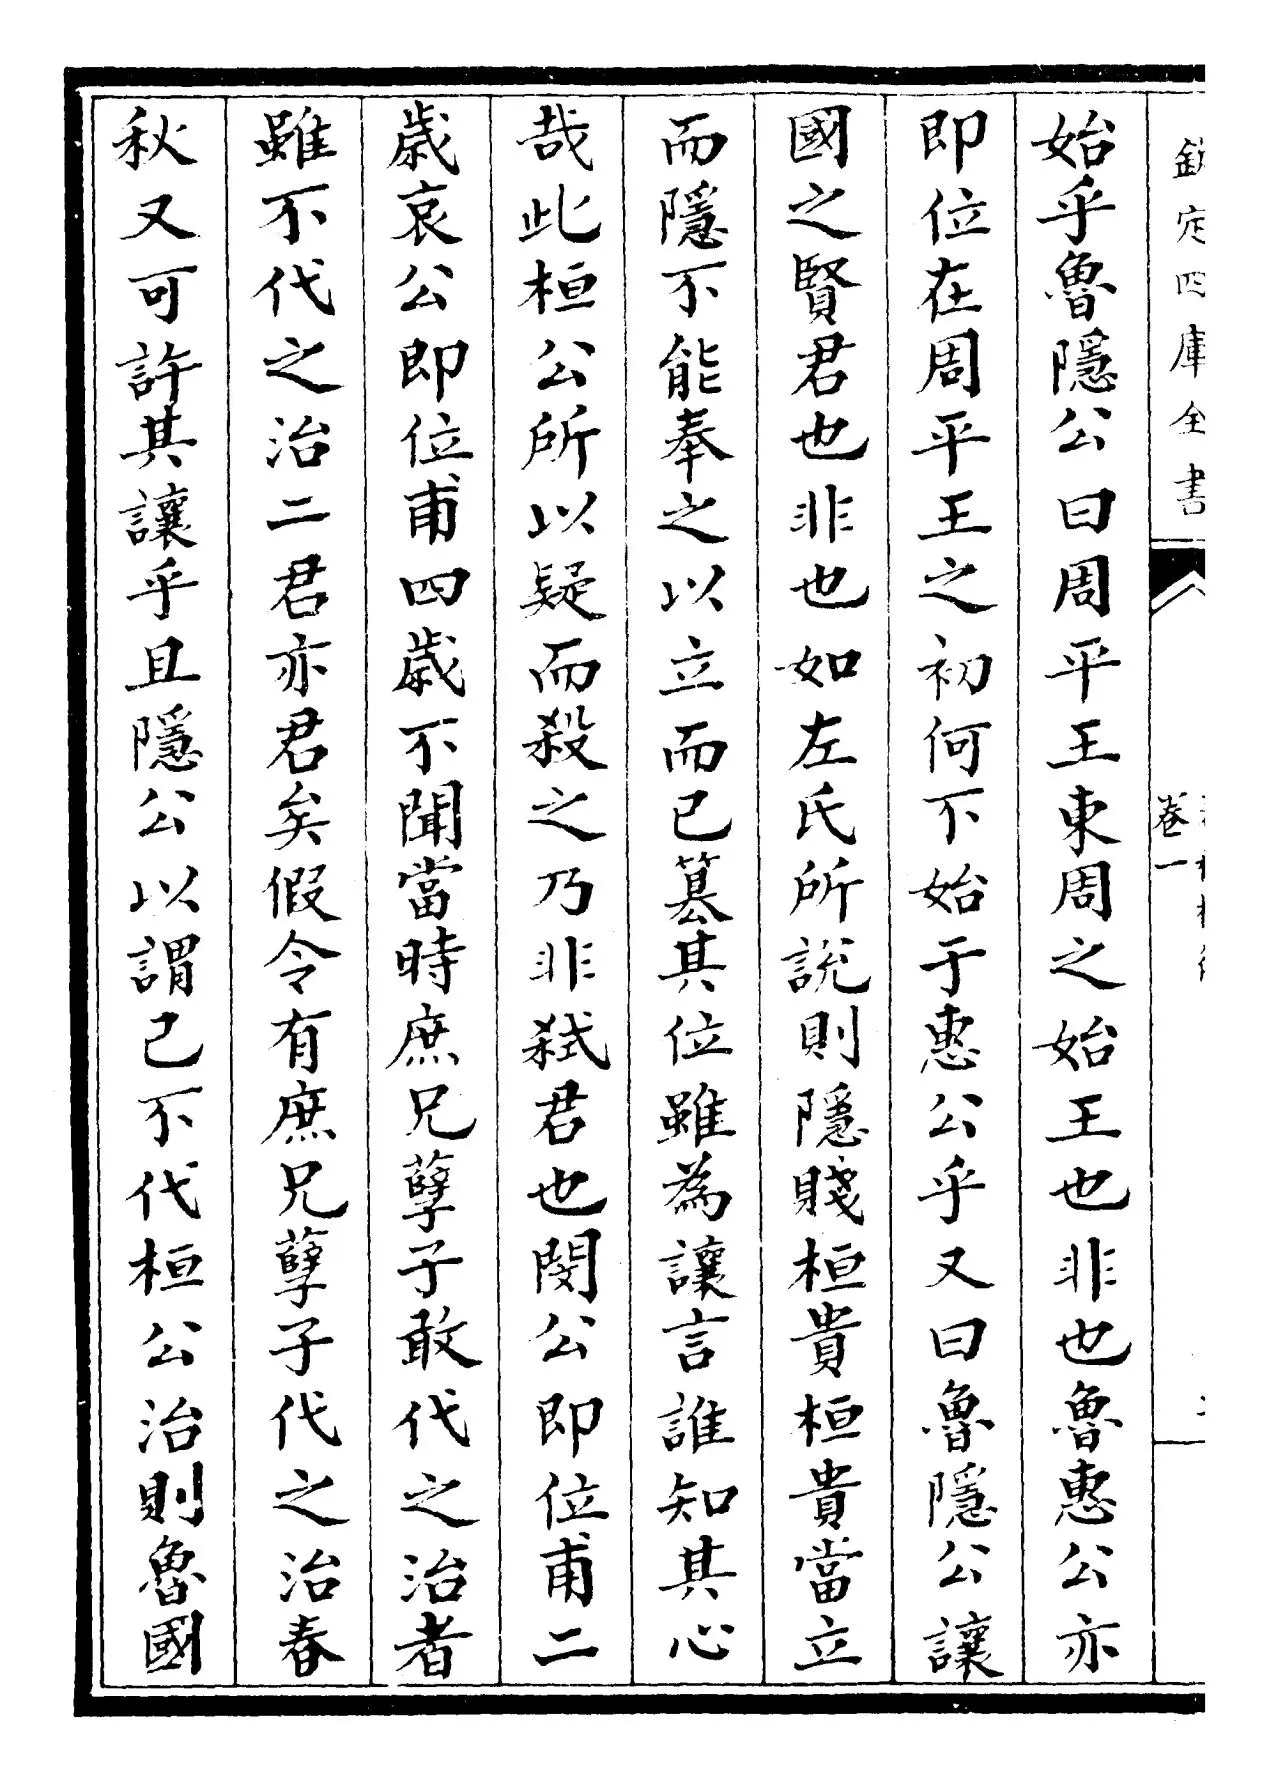 欽定四庫全書
卷一
始乎魯隱公曰周平王東周之始王也非也魯惠公亦
即位在周平王之初何不始于惠公乎又曰魯隱公讓
國之賢君也非也如左氏所說則隱賤桓貴桓貴當立
而隱不能奉之以立而已篡其位雖為讓言誰知其心
哉此桓公所以疑而殺之乃非弒君也閔公即位甫二
歲哀公即位甫四歲不聞當時庶兄孽子敢代之治者
雖不代之治二君亦君矣假令有庶兄孽子代之治春
秋又可許其讓乎且隱公以謂己不代桓公治則魯國